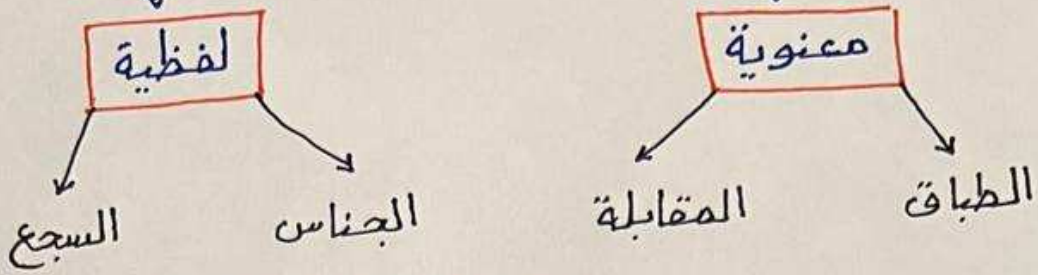 معنوية لفظية
الطباق المقابلة الجناس السجع